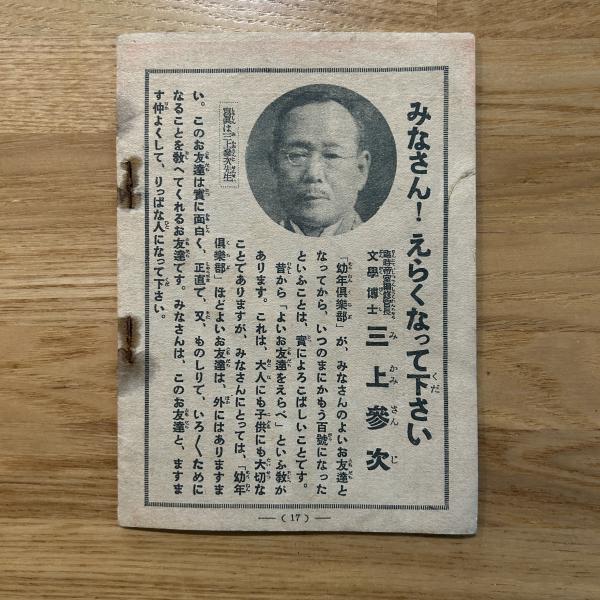 みなさん！えらくなって下さい
臨時帝室編修官長
文學博士 三上參次
「幼年倶樂部」が、みなさんのよいお友達と
なってから、いつのまにかもう百號になった
といふことは、實によろこばしいことです。
昔から「よいお友達をえらべ」といふ敎が
あります。これは、大人にも子供にも大切な
ことでありますが、みなさんにとっては、「幼年
倶樂部」ほどよいお友達は、外にはありますま
い。このお友達は實に面白く、正直で、又、ものしりで、いろ〱ために
なることを敎へてくれるお友達です。みなさんは、このお友達と、ますま
す仲よくして、りっぱな人になって下さい。
寫眞は三上參次先生
(17)